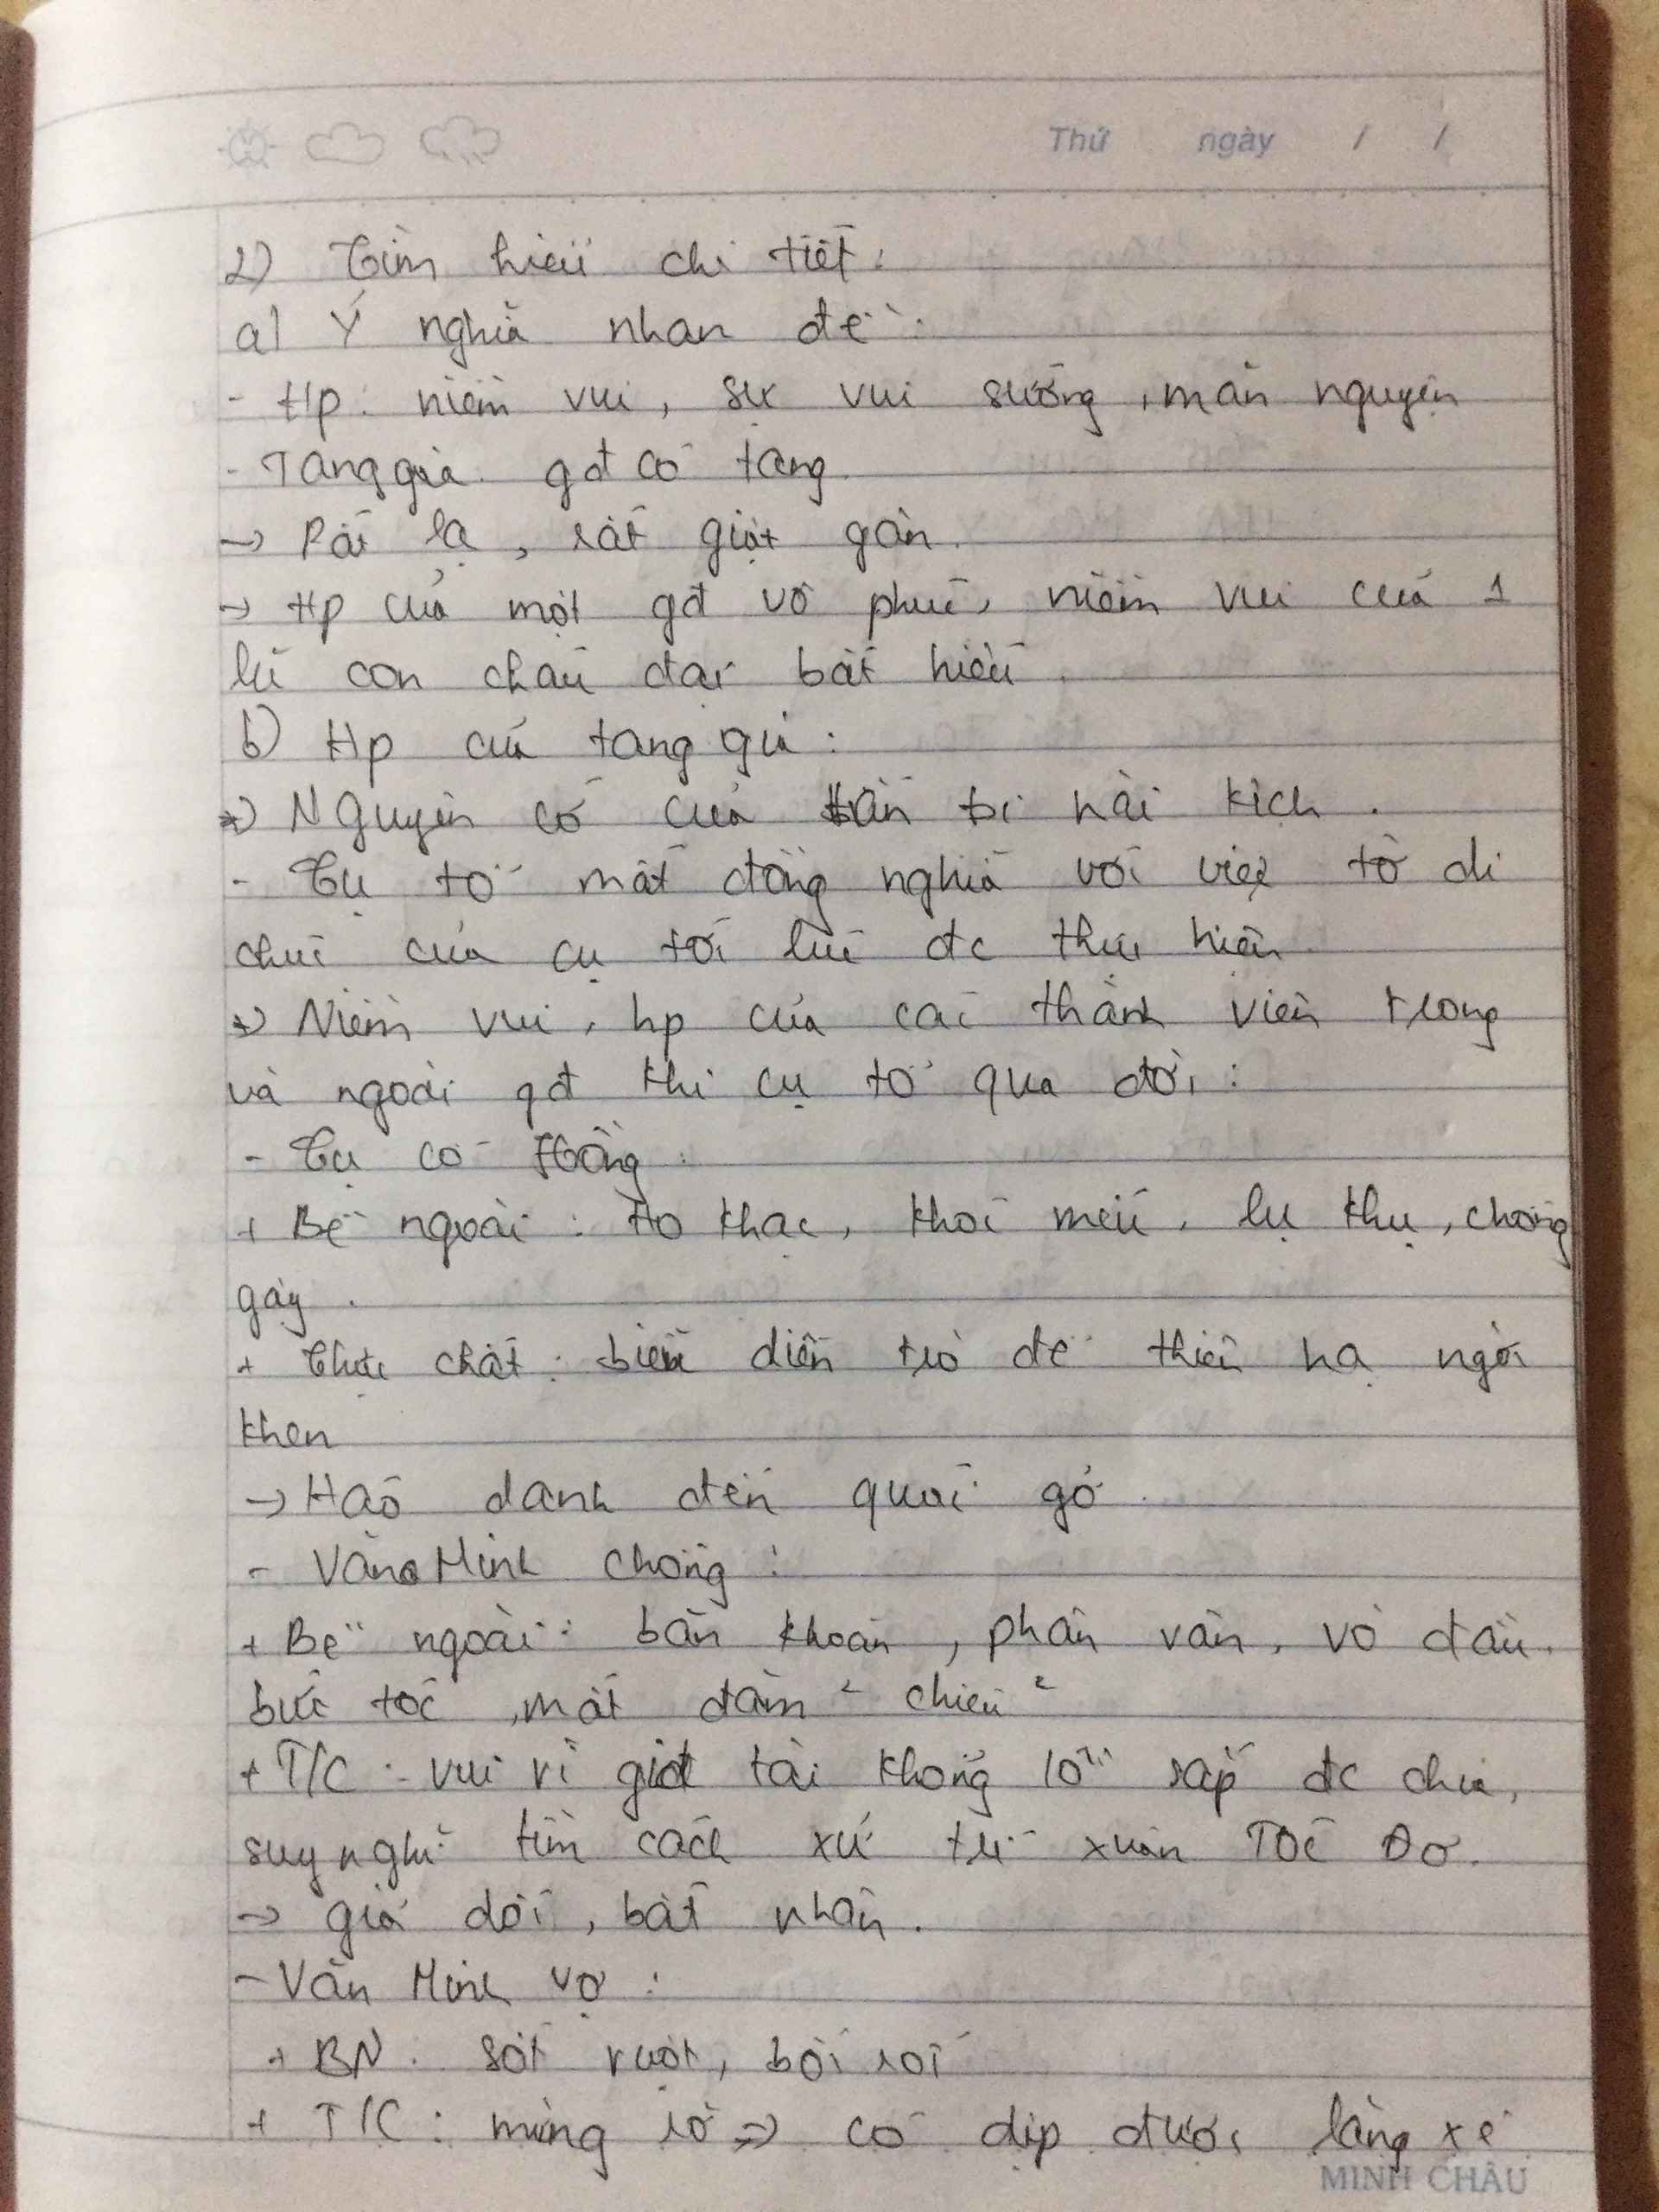 Thứ ngày / /
2) Tìm hiểu chi tiết:
a) Ý nghĩa nhan đề:
- Hp: niềm vui, sự vui sướng, mãn nguyện
- Tang gia: gđ có tang
-> Rất lạ, rất giật gân.
-> Hp của một gđ vô phúc, niềm vui của 1
lũ con cháu đại bất hiếu.
b) Hp của tang gia:
*) Nguyên cớ của bi hài kịch.
- Cụ tổ mất đồng nghĩa với việc tờ di
chúc của cụ tới lúc đc thực hiện
*) Niềm vui, hp của các thành viên trong
và ngoài gđ khi cụ tổ qua đời:
- Cụ cố Hồng:
+ Bề ngoài: ho khạc, khóc mếu, lụ khụ, chống
gậy.
+ Thực chất: biểu diễn trò để thiên hạ ngợi
khen
-> Háo danh đến quái gở
- Văn Minh chồng:
+ Bề ngoài: băn khoăn, phân vân, vò đầu
bứt tóc, mặt đăm² chiêu²
+ T/C: vui vì giọt tài khổng lồ sắp đc chia,
suy nghĩ tìm cách xử trí Xuân Tóc Đỏ.
-> giả dối, bất nhân.
- Văn Minh vợ:
+ BN: sốt ruột, bối rối
+ T/C: mừng rỡ => có dịp được lăng xê
MINH CHÂU